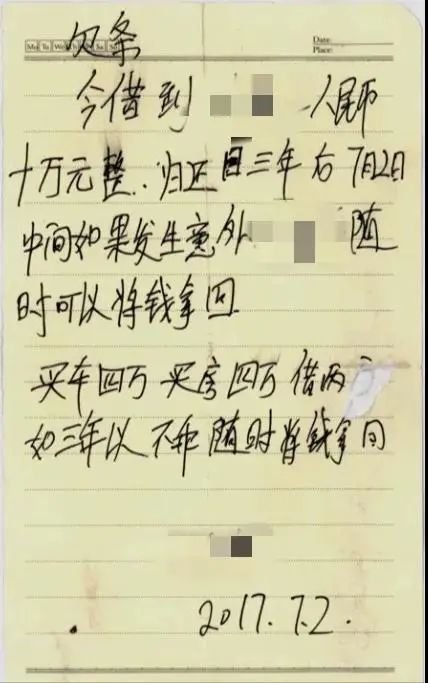 Mo Tu We Th Fr Sa Su
Date:
Place:
欠条
今借到 人民币
十万元整. 归还日三年后 7月2日
中间如果发生意外 随
时可以将钱拿回.
买车四万 买房四万 借两
如三年以 不和 随时将钱拿回
2017.7.2.